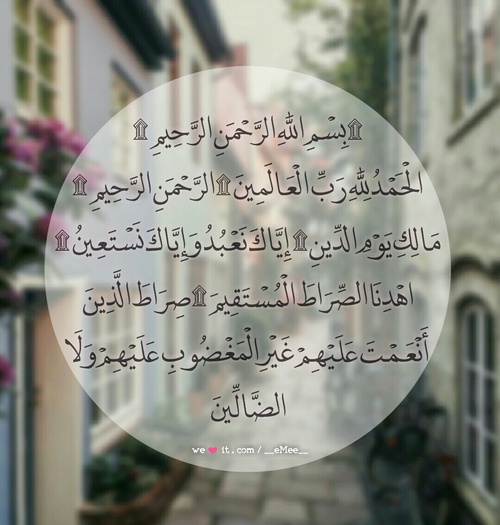 ۩بِسْمِ اللهِ الرَّحْمَنِ الرَّحِيمِ۩
الْحَمْدُ لِلهِ رَبِّ الْعَالَمِينَ۩الرَّحْمَنِ الرَّحِيمِ۩
مَالِكِ يَوْمِ الدِّينِ۩إِيَّاكَ نَعْبُدُ وَإِيَّاكَ نَسْتَعِينُ۩
اهْدِنَا الصِّرَاطَ الْمُسْتَقِيمَ۩صِرَاطَ الَّذِينَ
أَنْعَمْتَ عَلَيْهِمْ غَيْرِ الْمَغْضُوبِ عَلَيْهِمْ وَلَا
الضَّالِّينَ
we❤it.com/__eMee__